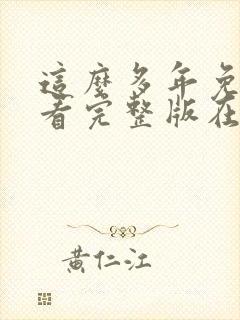 這麼多年免
看完整版在
黃仁江